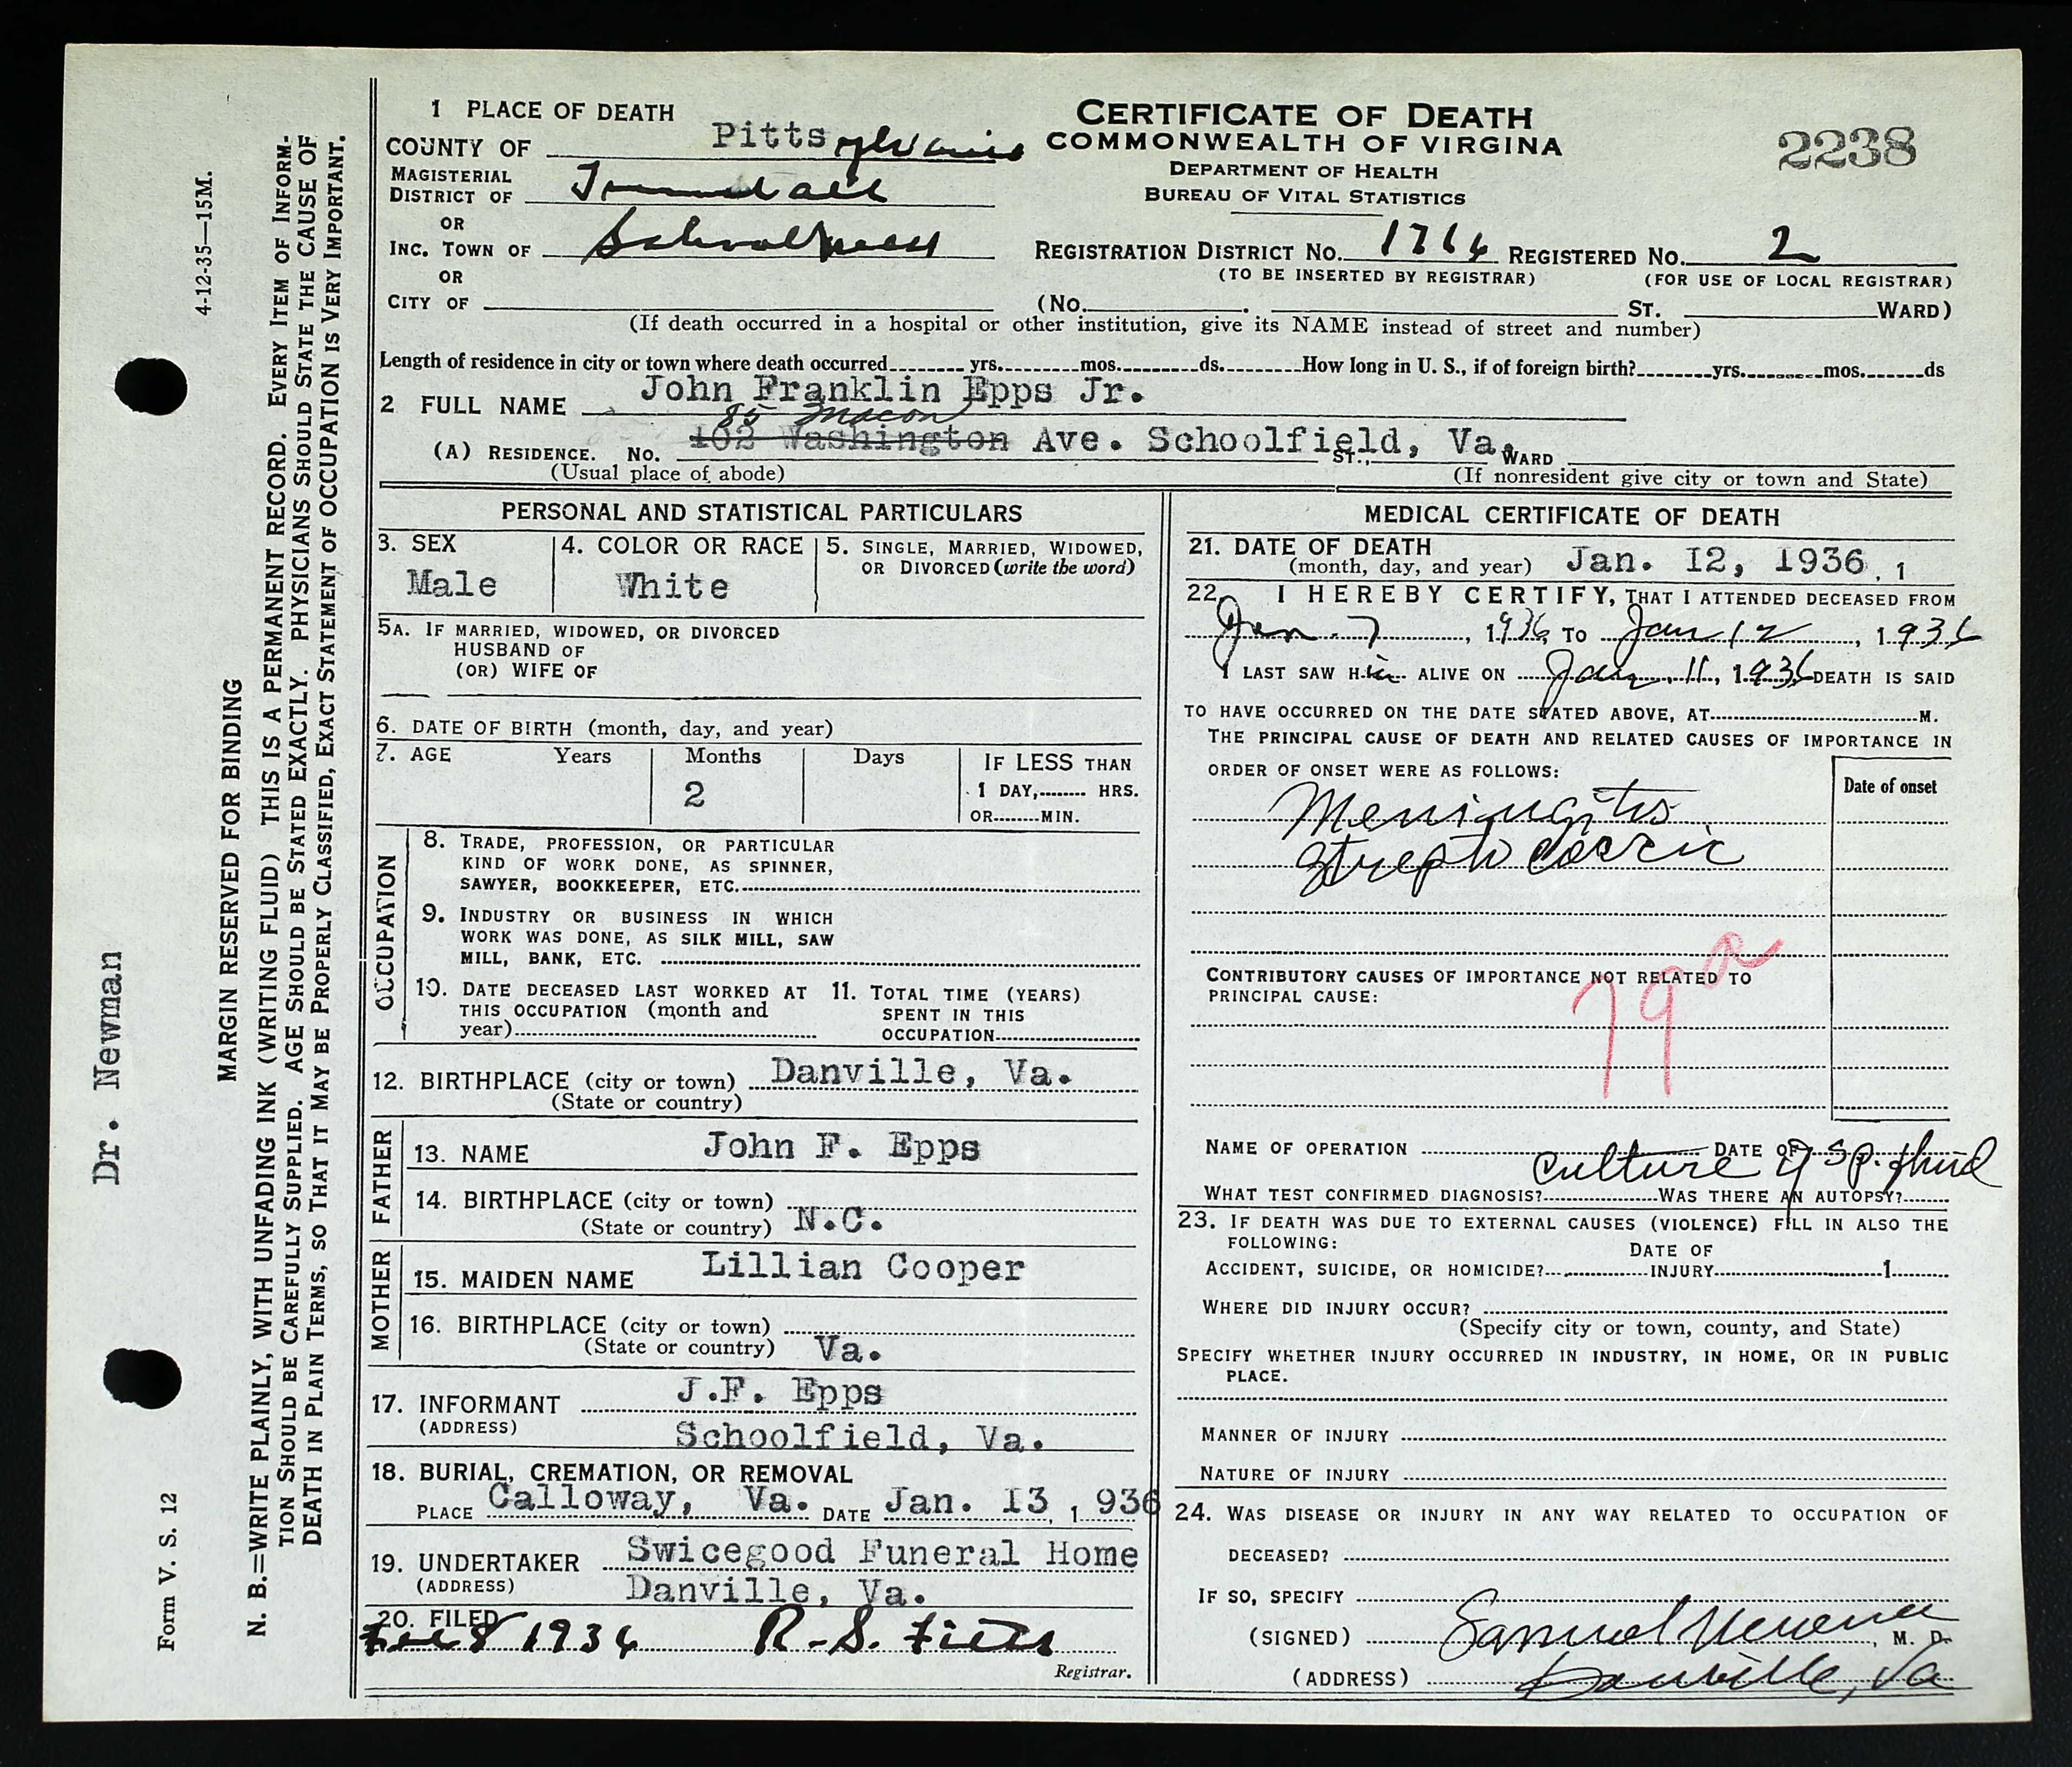 Dr. Newman
Form V. S. 12
4-12-35—15M.
MARGIN RESERVED FOR BINDING
N. B.=WRITE PLAINLY, WITH UNFADING INK (WRITING FLUID) THIS IS A PERMANENT RECORD. EVERY ITEM OF INFORM-
TION SHOULD BE CAREFULLY SUPPLIED. AGE SHOULD BE STATED EXACTLY. PHYSICIANS SHOULD STATE THE CAUSE OF
DEATH IN PLAIN TERMS, SO THAT IT MAY BE PROPERLY CLASSIFIED, EXACT STATEMENT OF OCCUPATION IS VERY IMPORTANT.
CERTIFICATE OF DEATH
COMMONWEALTH OF VIRGINA
DEPARTMENT OF HEALTH
BUREAU OF VITAL STATISTICS
2238
1 PLACE OF DEATH
COUNTY OF Pittsylvania
MAGISTERIAL
DISTRICT OF
OR
INC. TOWN OF Schoolfield
OR
REGISTRATION DISTRICT NO. 1716 REGISTERED NO. 2
(TO BE INSERTED BY REGISTRAR) (FOR USE OF LOCAL REGISTRAR)
CITY OF (No. ST. WARD)
(If death occurred in a hospital or other institution, give its NAME instead of street and number)
Length of residence in city or town where death occurred yrs. mos. ds. How long in U. S., if of foreign birth? yrs. mos. ds
2 FULL NAME John Franklin Epps Jr.
85 Macon
(A) RESIDENCE. No. 102 Washington Ave. Schoolfield, Va. ST., WARD
(Usual place of abode) (If nonresident give city or town and State)
PERSONAL AND STATISTICAL PARTICULARS
3. SEX 4. COLOR OR RACE 5. SINGLE, MARRIED, WIDOWED,
OR DIVORCED (write the word)
Male White
5A. IF MARRIED, WIDOWED, OR DIVORCED
HUSBAND OF
(OR) WIFE OF
6. DATE OF BIRTH (month, day, and year)
7. AGE Years Months Days IF LESS THAN
2 1 DAY, HRS.
OR MIN.
OCCUPATION
8. TRADE, PROFESSION, OR PARTICULAR
KIND OF WORK DONE, AS SPINNER,
SAWYER, BOOKKEEPER, ETC.
9. INDUSTRY OR BUSINESS IN WHICH
WORK WAS DONE, AS SILK MILL, SAW
MILL, BANK, ETC.
10. DATE DECEASED LAST WORKED AT 11. TOTAL TIME (YEARS)
THIS OCCUPATION (month and SPENT IN THIS
year) OCCUPATION
12. BIRTHPLACE (city or town) Danville, Va.
(State or country)
FATHER
13. NAME John F. Epps
14. BIRTHPLACE (city or town)
(State or country) N.C.
MOTHER
15. MAIDEN NAME Lillian Cooper
16. BIRTHPLACE (city or town)
(State or country) Va.
17. INFORMANT J.F. Epps
(ADDRESS) Schoolfield, Va.
18. BURIAL, CREMATION, OR REMOVAL
PLACE Calloway, Va. DATE Jan. 13, 1936
19. UNDERTAKER Swicegood Funeral Home
(ADDRESS) Danville, Va.
20. FILED
8 1936 R. S. Fitts
Registrar.
MEDICAL CERTIFICATE OF DEATH
21. DATE OF DEATH
(month, day, and year) Jan. 12, 1936, 1
22. I HEREBY CERTIFY, THAT I ATTENDED DECEASED FROM
Jan. 7, 1936, TO Jan 12, 1936
I LAST SAW HIM ALIVE ON Jan. 11, 1936 DEATH IS SAID
TO HAVE OCCURRED ON THE DATE STATED ABOVE, AT M.
THE PRINCIPAL CAUSE OF DEATH AND RELATED CAUSES OF IMPORTANCE IN
ORDER OF ONSET WERE AS FOLLOWS:
Date of onset
Meningitis
Streptococcic
CONTRIBUTORY CAUSES OF IMPORTANCE NOT RELATED TO
PRINCIPAL CAUSE:
79a
NAME OF OPERATION DATE OF
culture of sp. fluid
WHAT TEST CONFIRMED DIAGNOSIS? WAS THERE AN AUTOPSY?
23. IF DEATH WAS DUE TO EXTERNAL CAUSES (VIOLENCE) FILL IN ALSO THE
FOLLOWING:
DATE OF
ACCIDENT, SUICIDE, OR HOMICIDE? INJURY 1
WHERE DID INJURY OCCUR?
(Specify city or town, county, and State)
SPECIFY WHETHER INJURY OCCURRED IN INDUSTRY, IN HOME, OR IN PUBLIC
PLACE.
MANNER OF INJURY
NATURE OF INJURY
24. WAS DISEASE OR INJURY IN ANY WAY RELATED TO OCCUPATION OF
DECEASED?
IF SO, SPECIFY
(SIGNED) Samuel Newman, M. D.
(ADDRESS) Danville, Va